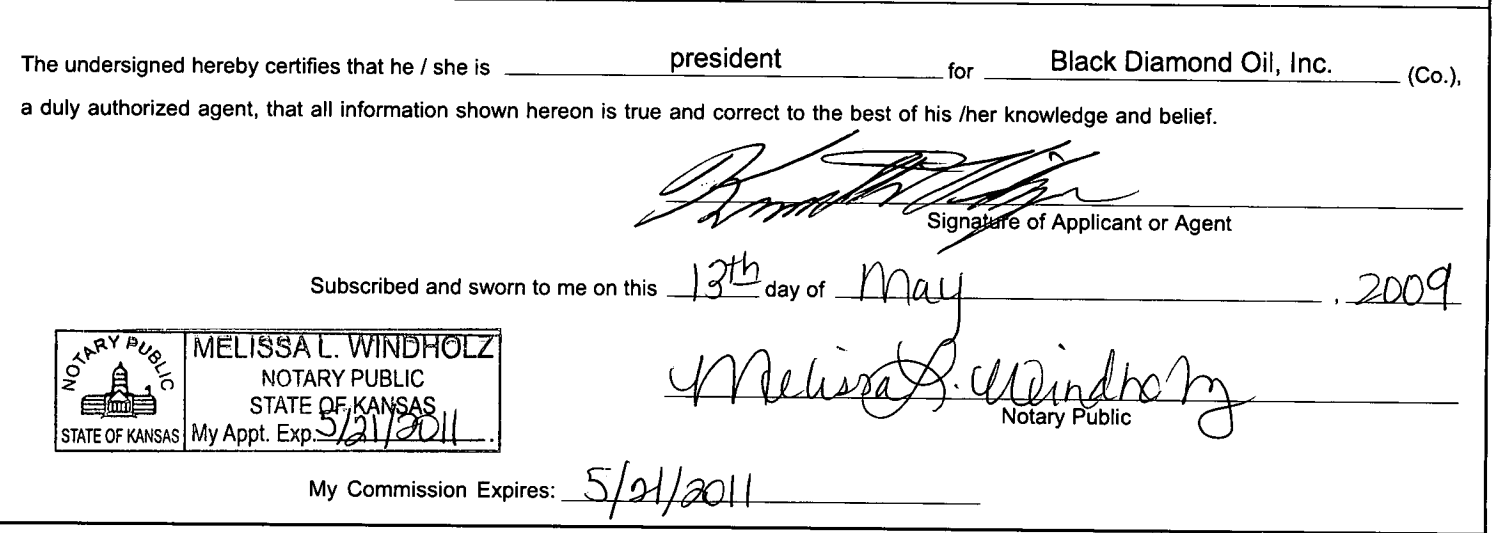 The undersigned hereby certifies that he / she is president for Black Diamond Oil, Inc. (Co.),
a duly authorized agent, that all information shown hereon is true and correct to the best of his /her knowledge and belief.
Signature of Applicant or Agent
Subscribed and sworn to me on this 13th day of May , 2009
NOTARY PUBLIC
STATE OF KANSAS
MELISSA L. WINDHOLZ
NOTARY PUBLIC
STATE OF KANSAS
My Appt. Exp. 5/21/2011
Melissa L. Windholz
Notary Public
My Commission Expires: 5/21/2011